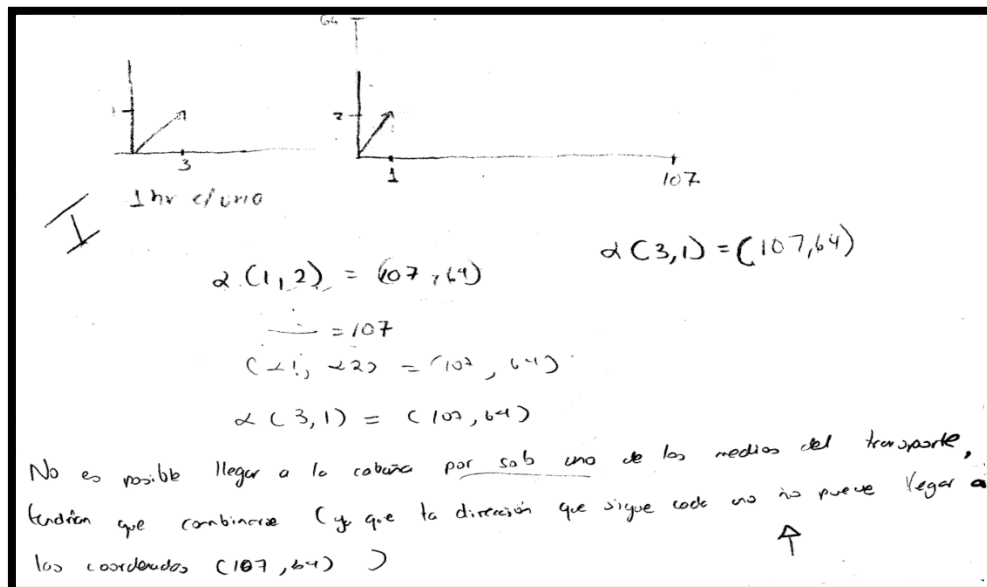 64
3
1 hr c/uno
2
1
107
I
α (1,2) = (107,64)
α (3,1) = (107,64)
= 107
(α1, α2) = (107, 64)
α (3,1) = (107,64)
No es posible llegar a la cabaña por solo uno de los medios del transporte,
tendrían que combinarse (ya que la dirección que sigue cada uno no puede llegar a
las coordenadas (107,64) )